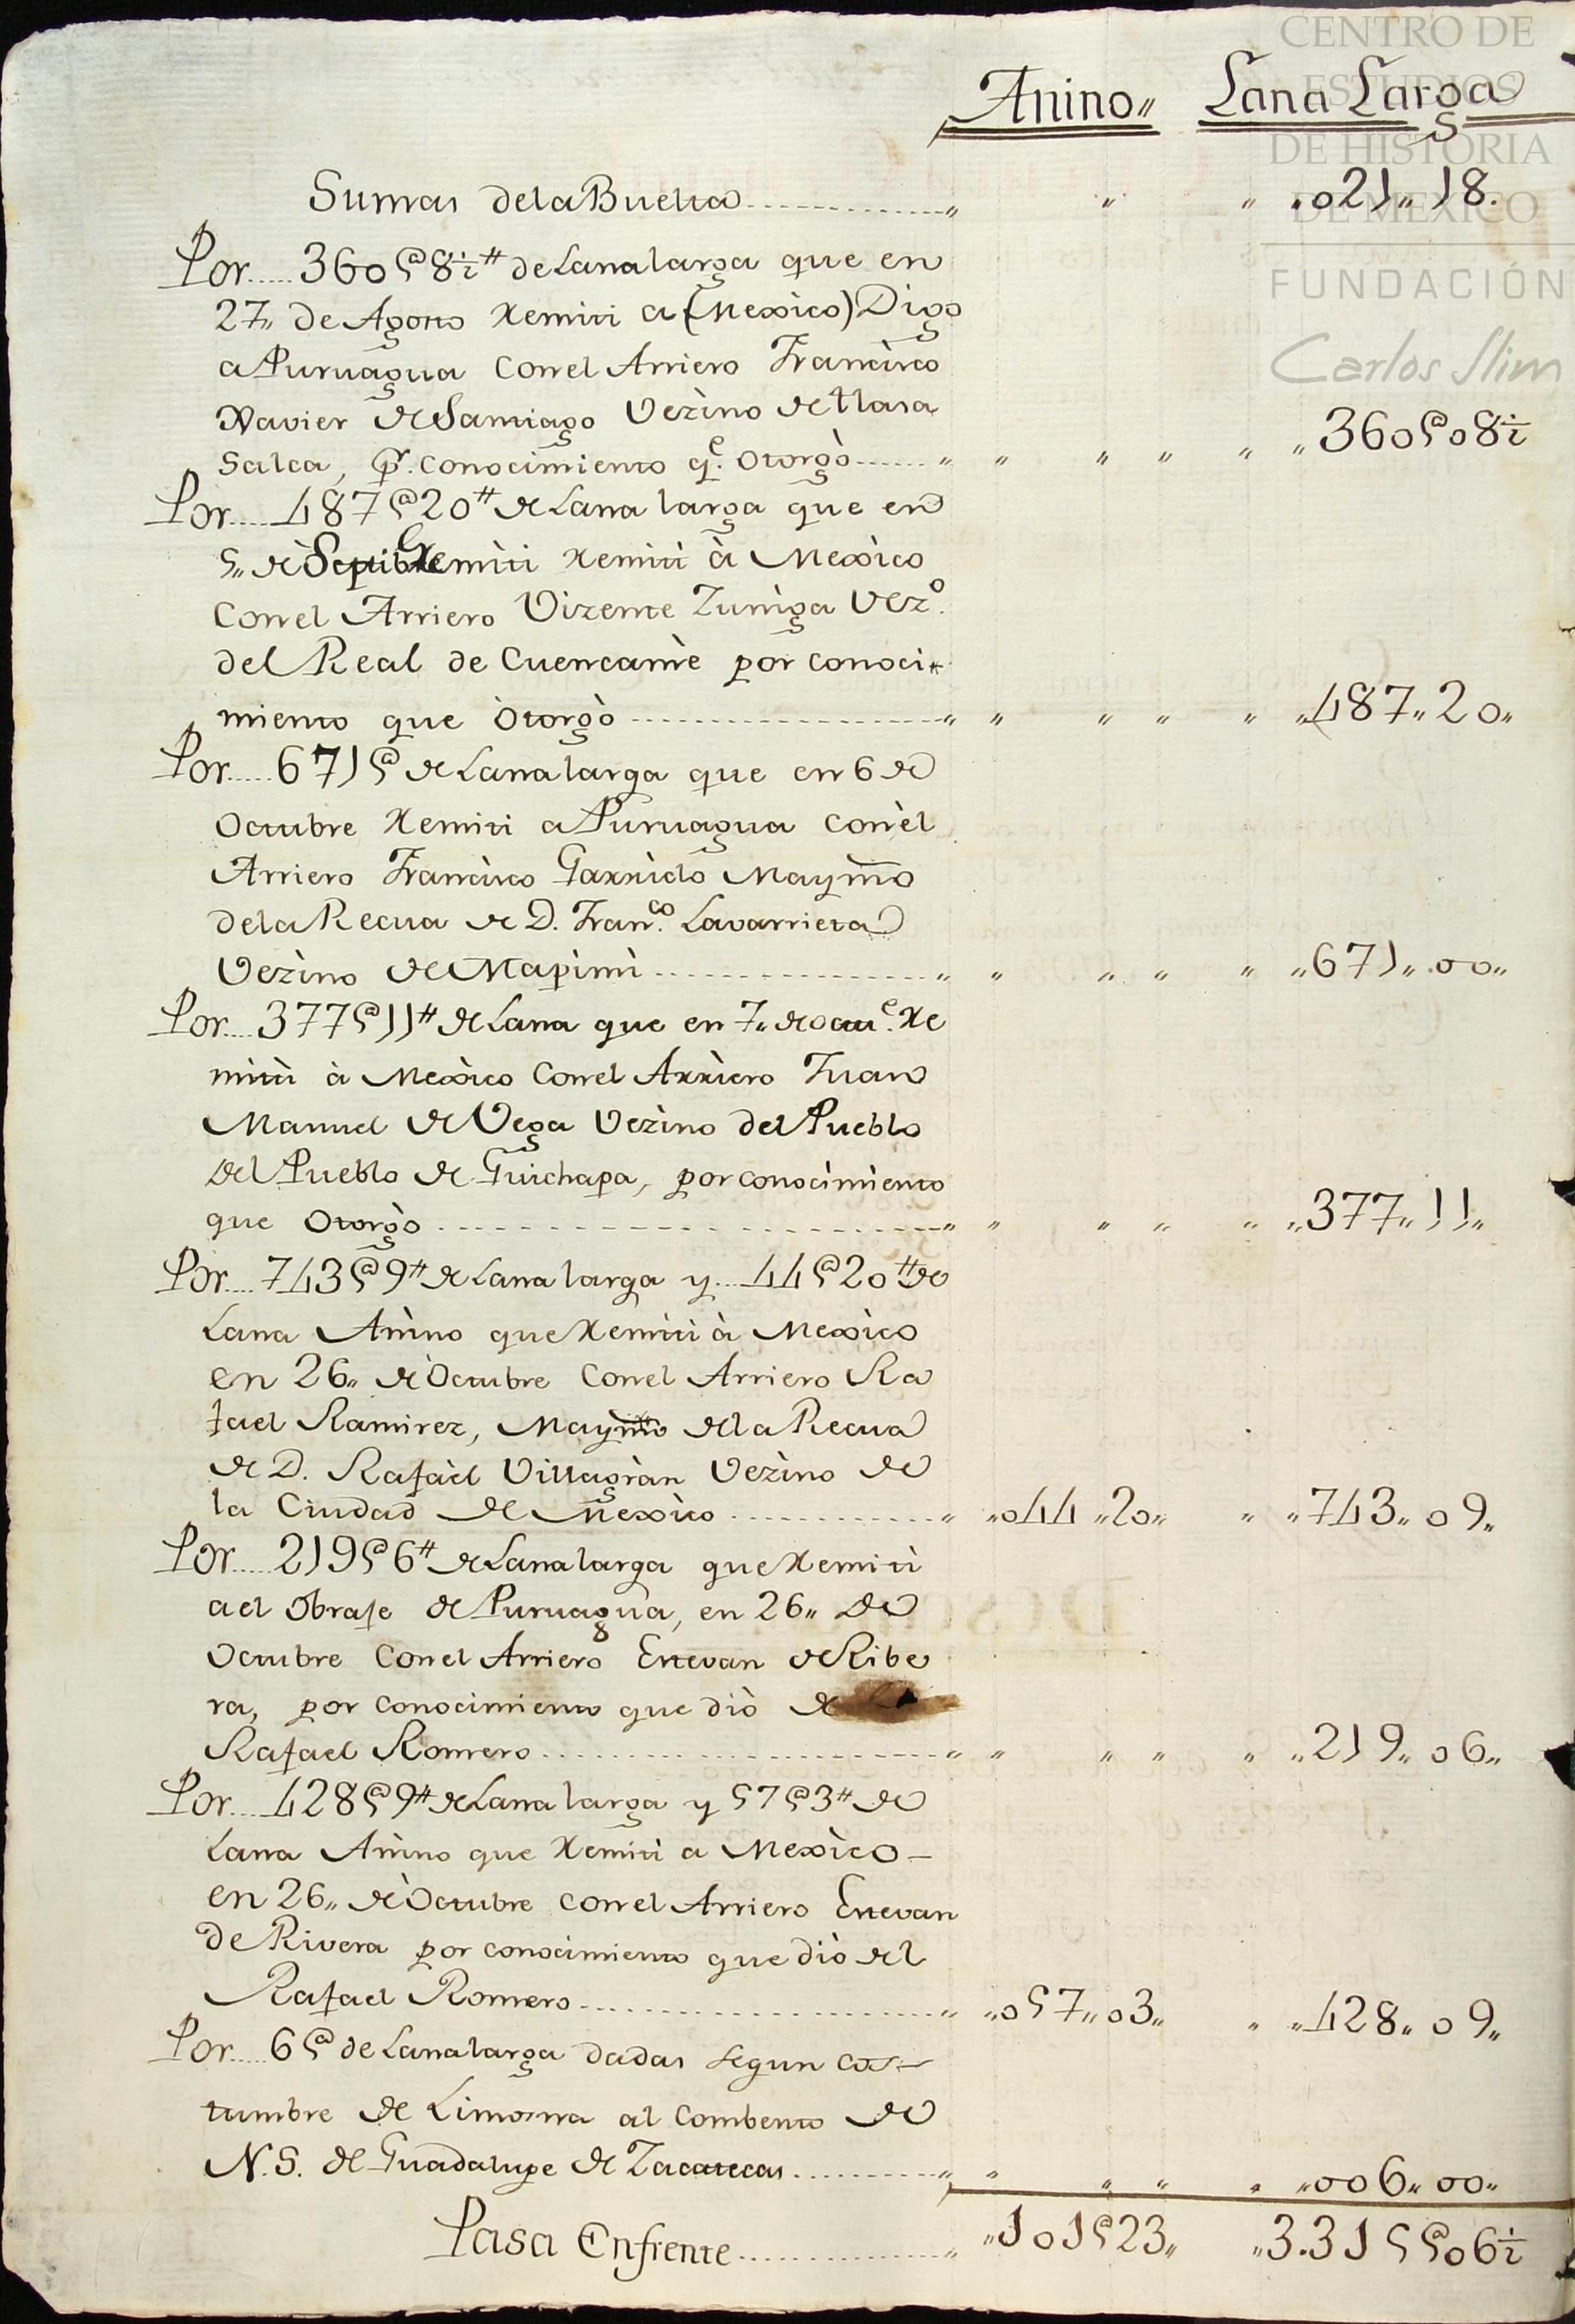 CENTRO DE
ESTUDIOS
DE HISTORIA
DE MEXICO
FUNDACIÓN
Carlos Slim
Anino„ Lana Larga
Sumas dela Buelta „ „ „ .021„ 18.
Por 360@8½# de Lana larga que en
27„ de Agosto Remiti a (Mexico) Digo
a Puruagua Con el Arriero Francisco
Xavier de Santiago Vezino de tlasa
Salca, pr. Conocimiento qe. Otorgò „ „ „ „ „ „ 360@08½
Por 487@20# de Lana larga que en
5„ de Septibre Remiti à Mexico
Con el Arriero Vizente Zuniga Vezo.
del Real de Cuencamè por conoci-
miento que Otorgò „ „ „ „ „ „487„20„
Por 671@ de Lana larga que en 6 de
Octubre Remiti a Puruagua Con èl
Arriero Francisco Garrido Maymo
dela Recua de D. Franco. Lavarrieta
Vezino de Mapimi „ „ „ „ „ „671„.00„
Por 377@11# de Lana que en 7„ de Octue. Re
miti à Mexico Con el Arriero Juan
Manuel de Vega Vezino del Pueblo
del Pueblo de Guichapa, por conocimiento
que Otorgò „ „ „ „ „ „377„11„
Por 743@9# de Lana larga y 44@20# de
Lana Anino que Remiti à Mexico
en 26„ de Octubre Con el Arriero Ra
fael Ramirez, Maymo dela Recua
de D. Rafaèl Villagràn Vezino de
la Ciudad de Mexico „ „044„20„ „ „743„09„
Por 219@6# de Lana larga que Remiti
a el Obraje de Puruagua, en 26„ de
Octubre Con el Arriero Estevan de Ribe
ra, por conocimiento que diò de
Rafael Romero „ „ „ „ „ „219„06„
Por 428@9# de Lana larga y 57@3# de
Lana Anino que Remiti a Mexico
en 26„ de Octubre Con el Arriero Estevan
de Rivera por conocimiento que diò del
Rafael Romero „ „057„03„ „ „428„09„
Por 6@ de Lana larga dadas segun cos-
tumbre de Limosna al Combento de
N.S. de Guadalupe de Zacatecas „ „ „ „ „ „006„00„
Pasa Enfrente „ „101@23„ „3.315@06½